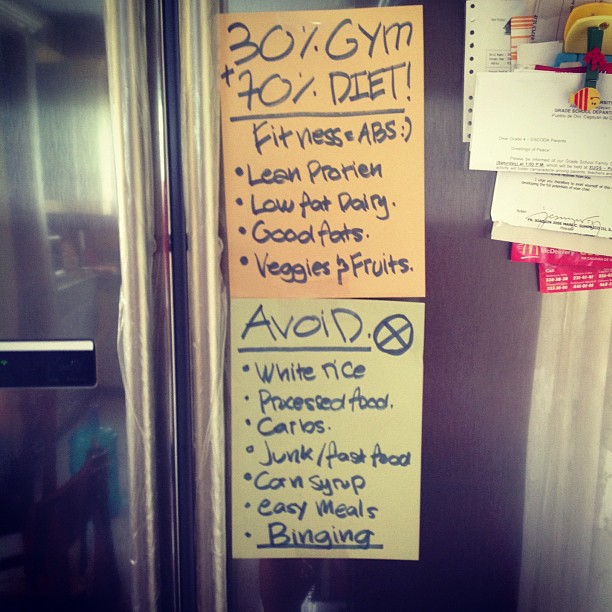 30% GYM
+ 70% DIET!
Fitness = ABS :)
• Lean Protien
• Low fat Dairy.
• Good fats.
• Veggies & Fruits.
AVOID.
• White rice
• Processed food.
• Carbs.
• Junk/fast food
• Corn syrup
• easy Meals
• Binging
GRADE SCHOOL DEPART
Greetings of Peace!
Please be informed of our Grade School Family